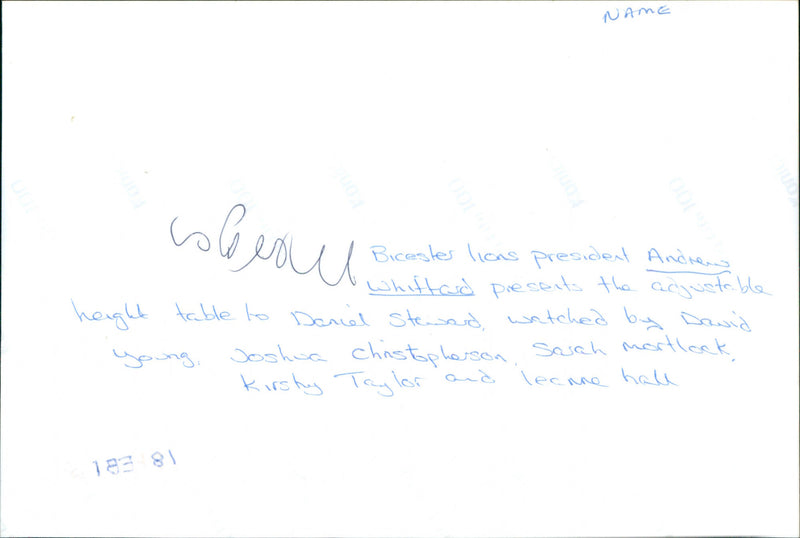 NAME
Bicester lions president Andrew
Whittard presents the adjustable
height table to Daniel Steward, watched by David
Young, Joshua Christopherson, Sarah mortlock,
Kirsty Taylor and leanne hall
183 81